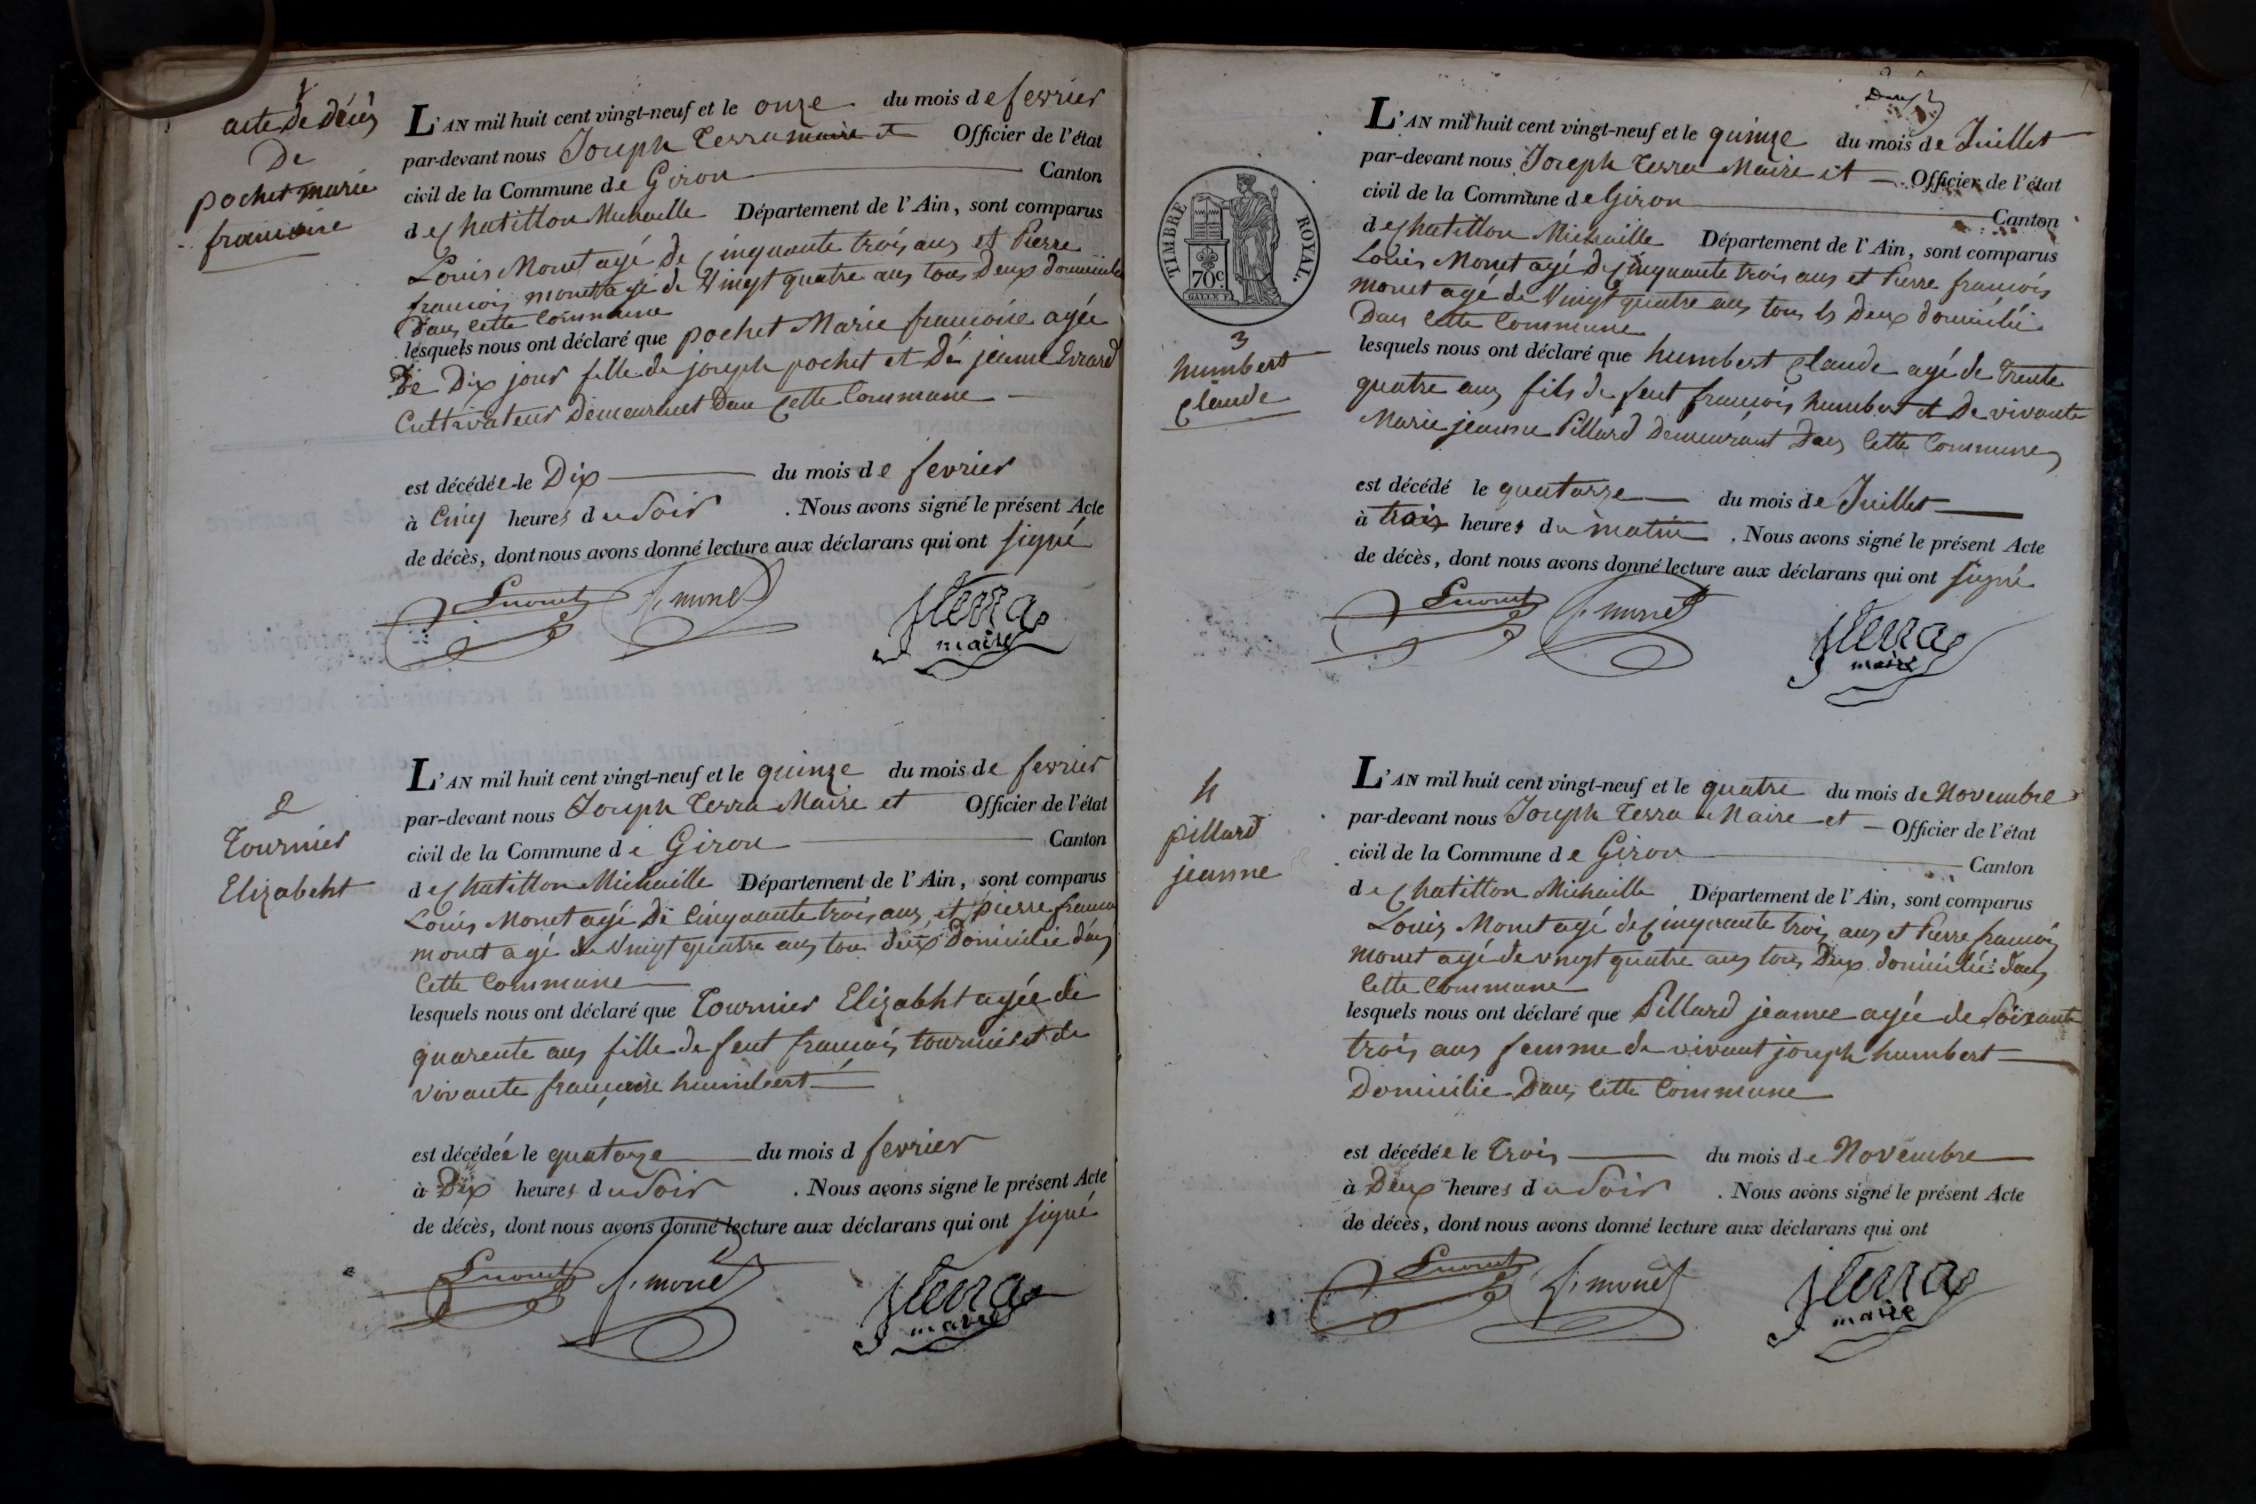 1
acte de décès
De
pochet marie
francoise
L'AN mil huit cent vingt-neuf et le onze du mois de fevrier
par-devant nous Joseph Terra maire et Officier de l'état
civil de la Commune de Giron Canton
de Chatillon Michaille Département de l'Ain, sont comparus
Louis Monet agé de Cinquante trois ans et Pierre
francois monet agé de Vingt quatre ans tous Deux domicilié
Dans Cette Commune
lesquels nous ont déclaré que pochet Marie francoise agée
De Dix jour fille de joseph pochet et De jeanne Evrard
Cultivateur Demeurant Dans Cette Commune
est décédée le Dix du mois de fevrier
à Cinq heures du Soir . Nous avons signé le présent Acte
de décès, dont nous avons donné lecture aux déclarans qui ont signé
L monet f. monet J Terra
maire
2
Tournier
Elizabeht
L'AN mil huit cent vingt-neuf et le quinze du mois de fevrier
par-devant nous Joseph Terra Maire et Officier de l'état
civil de la Commune de Giron Canton
de Chatillon Michaille Département de l'Ain, sont comparus
Louis Monet agé De Cinquante trois ans et pierre francois
monet agé de Vingt quatre ans tous deux Domicilié dans
Cette Commune
lesquels nous ont déclaré que Tournier Elizabht agée de
quarente ans fille de feut francois tournier et de
vivante francoise humbert
est décédée le quatorze du mois d fevrier
à Dix heures du Soir . Nous avons signé le présent Acte
de décès, dont nous avons donné lecture aux déclarans qui ont signé
L monet f. monet J Terra
maire
L'AN mil huit cent vingt-neuf et le quinze du mois de Juillet
par-devant nous Joseph Terra Maire et Officier de l'état
civil de la Commune de Giron Canton
de Chatillon Michaille Département de l'Ain, sont comparus
TIMBRE ROYAL.
70c.
Louis Monet agé de Cinquante trois ans et Pierre francois
monet agé de Vingt quatre ans tous les Deux domicilié
Dans Cette Commune
3
humbert
Claude
lesquels nous ont déclaré que humbert Claude agé de Trente
quatre ans fils de feut francois humbert et De vivante
Marie jeanne Pillard Demeurant Dans Cette Commune
est décédé le quatorze du mois de Juillet
à trois heures du matin . Nous avons signé le présent Acte
de décès, dont nous avons donné lecture aux déclarans qui ont signé
L monet f. monet J Terra
maire
4
pillard
jeanne
L'AN mil huit cent vingt-neuf et le quatre du mois de Novembre
par-devant nous Joseph Terra Maire et Officier de l'état
civil de la Commune de Giron Canton
de Chatillon Michaille Département de l'Ain, sont comparus
Louis Monet agé de Cinquante trois ans et Pierre francois
monet agé de vingt quatre ans tous Deux domicilié dans
Cette Commune
lesquels nous ont déclaré que Pillard jeanne agée de Soixante
trois ans femme de vivant joseph humbert
Domicilie Dans Cette Commune
est décédée le Trois du mois de Novembre
à Deux heures du Soir . Nous avons signé le présent Acte
de décès, dont nous avons donné lecture aux déclarans qui ont
L monet f. monet J Terra
maire